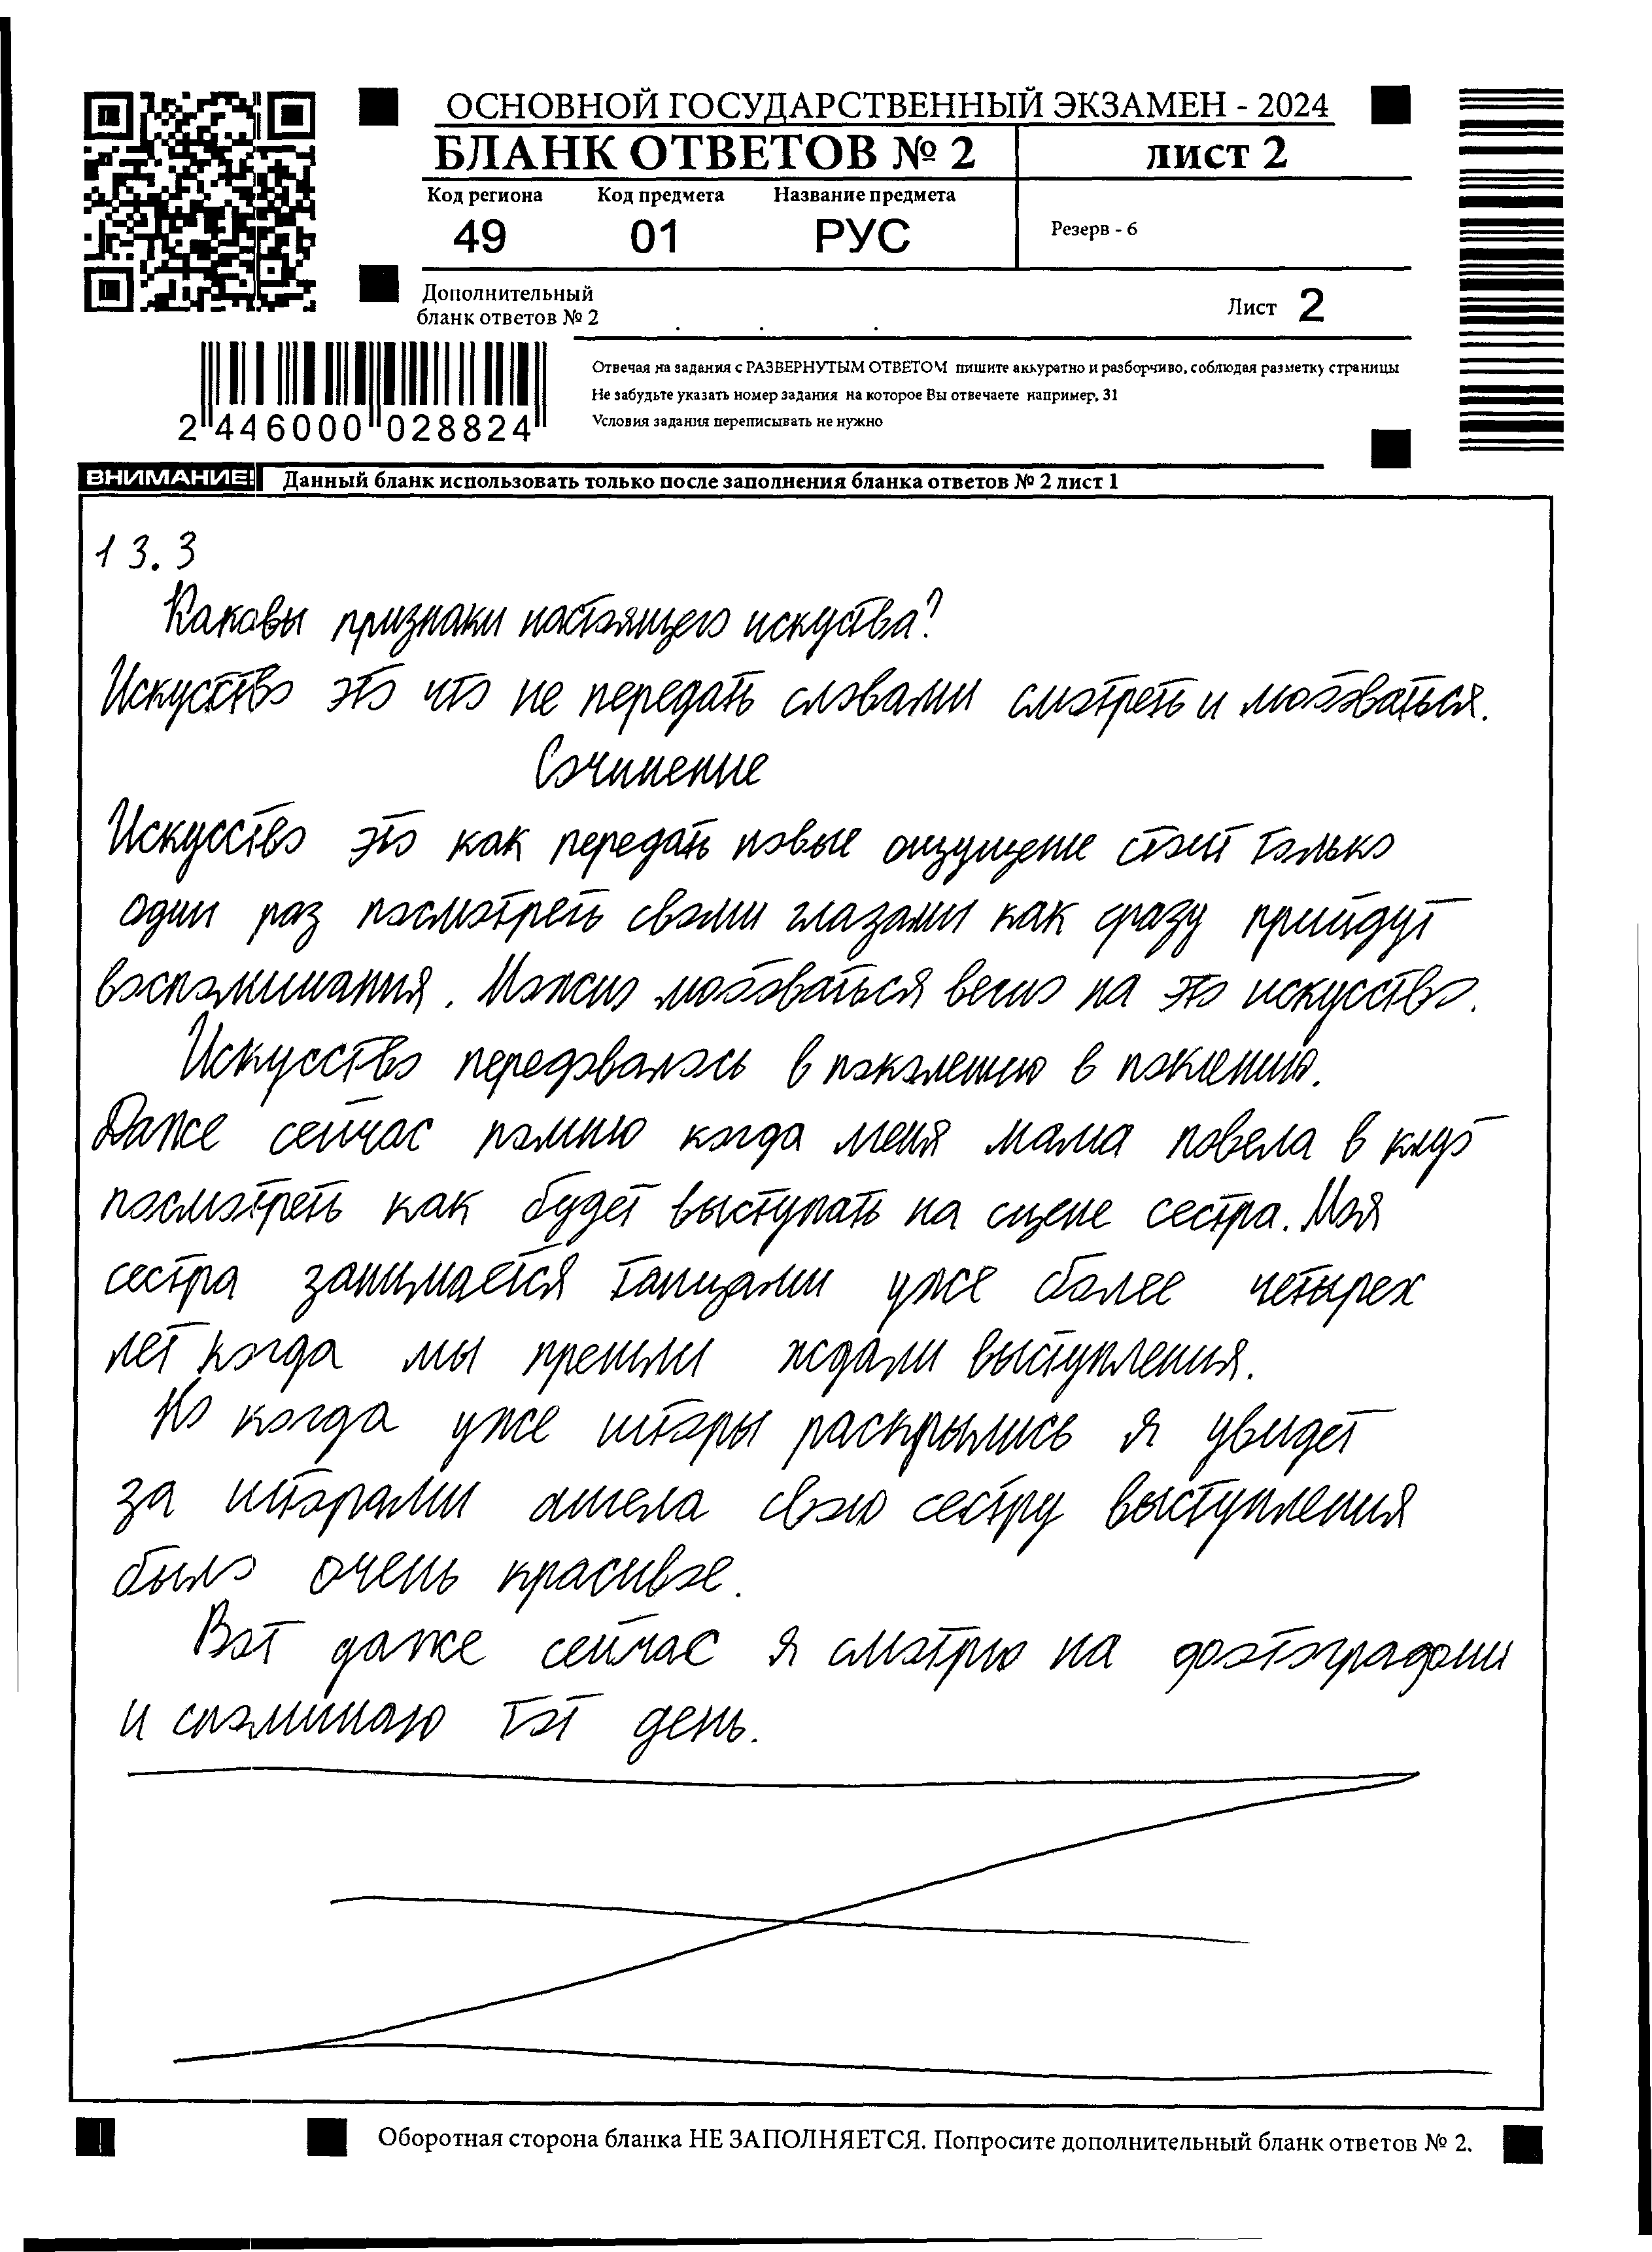 ОСНОВНОЙ ГОСУДАРСТВЕННЫЙ ЭКЗАМЕН - 2024
БЛАНК ОТВЕТОВ № 2
ЛИСТ 2
Код региона Код предмета Название предмета
49 01 РУС
Резерв - 6
Дополнительный
бланк ответов № 2
Лист 2
Отвечая на задания с РАЗВЕРНУТЫМ ОТВЕТОМ пишите аккуратно и разборчиво, соблюдая разметку страницы
Не забудьте указать номер задания на которое Вы отвечаете например, 31
Условия задания переписывать не нужно
2 446000 028824
ВНИМАНИЕ! Данный бланк использовать только после заполнения бланка ответов № 2 лист 1
13.3
Каковы признаки настоящего искуства?
Искусство это что не передать словами смотреть и любоваться.
Сочинение
Искусство это как передать новые ощущение стоит только
один раз посмотреть своми глазами как сразу прийдут
воспоминания. Можно любоваться вечно на это искусство.
Искусство передовалось в поколению в поклению.
Даже сейчас помню когда меня мама повела в клуб
посмотреть как будет выступать на сцене сестра. Моя
сестра занимается танцами уже более четырех
лет когда мы прешли ждали выступления.
Но когда уже шторы раскрылись я увидет
за шторами ангела свою сестру выступления
было очень красивое.
Вот даже сейчас я смотрю на фотографии
и споминаю тот день.
Оборотная сторона бланка НЕ ЗАПОЛНЯЕТСЯ. Попросите дополнительный бланк ответов № 2.